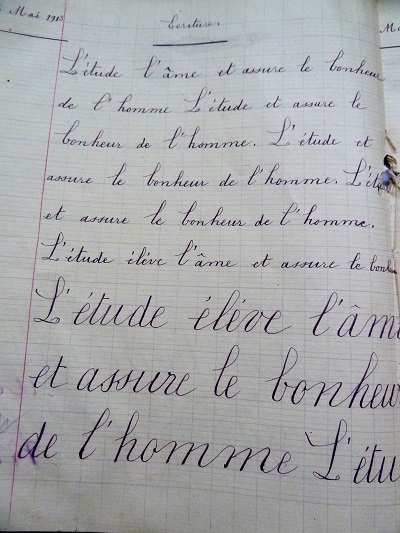 Mai 1913
Ecriture.
L'étude l'âme et assure le bonheur
de l'homme L'étude et assure le
bonheur de l'homme. L'étude et
assure le bonheur de l'homme. L'étu
et assure le bonheur de l'homme.
L'étude éléve l'âme et assure le bonh
L'étude éléve l'âm
et assure le bonheu
de l'homme L'étu